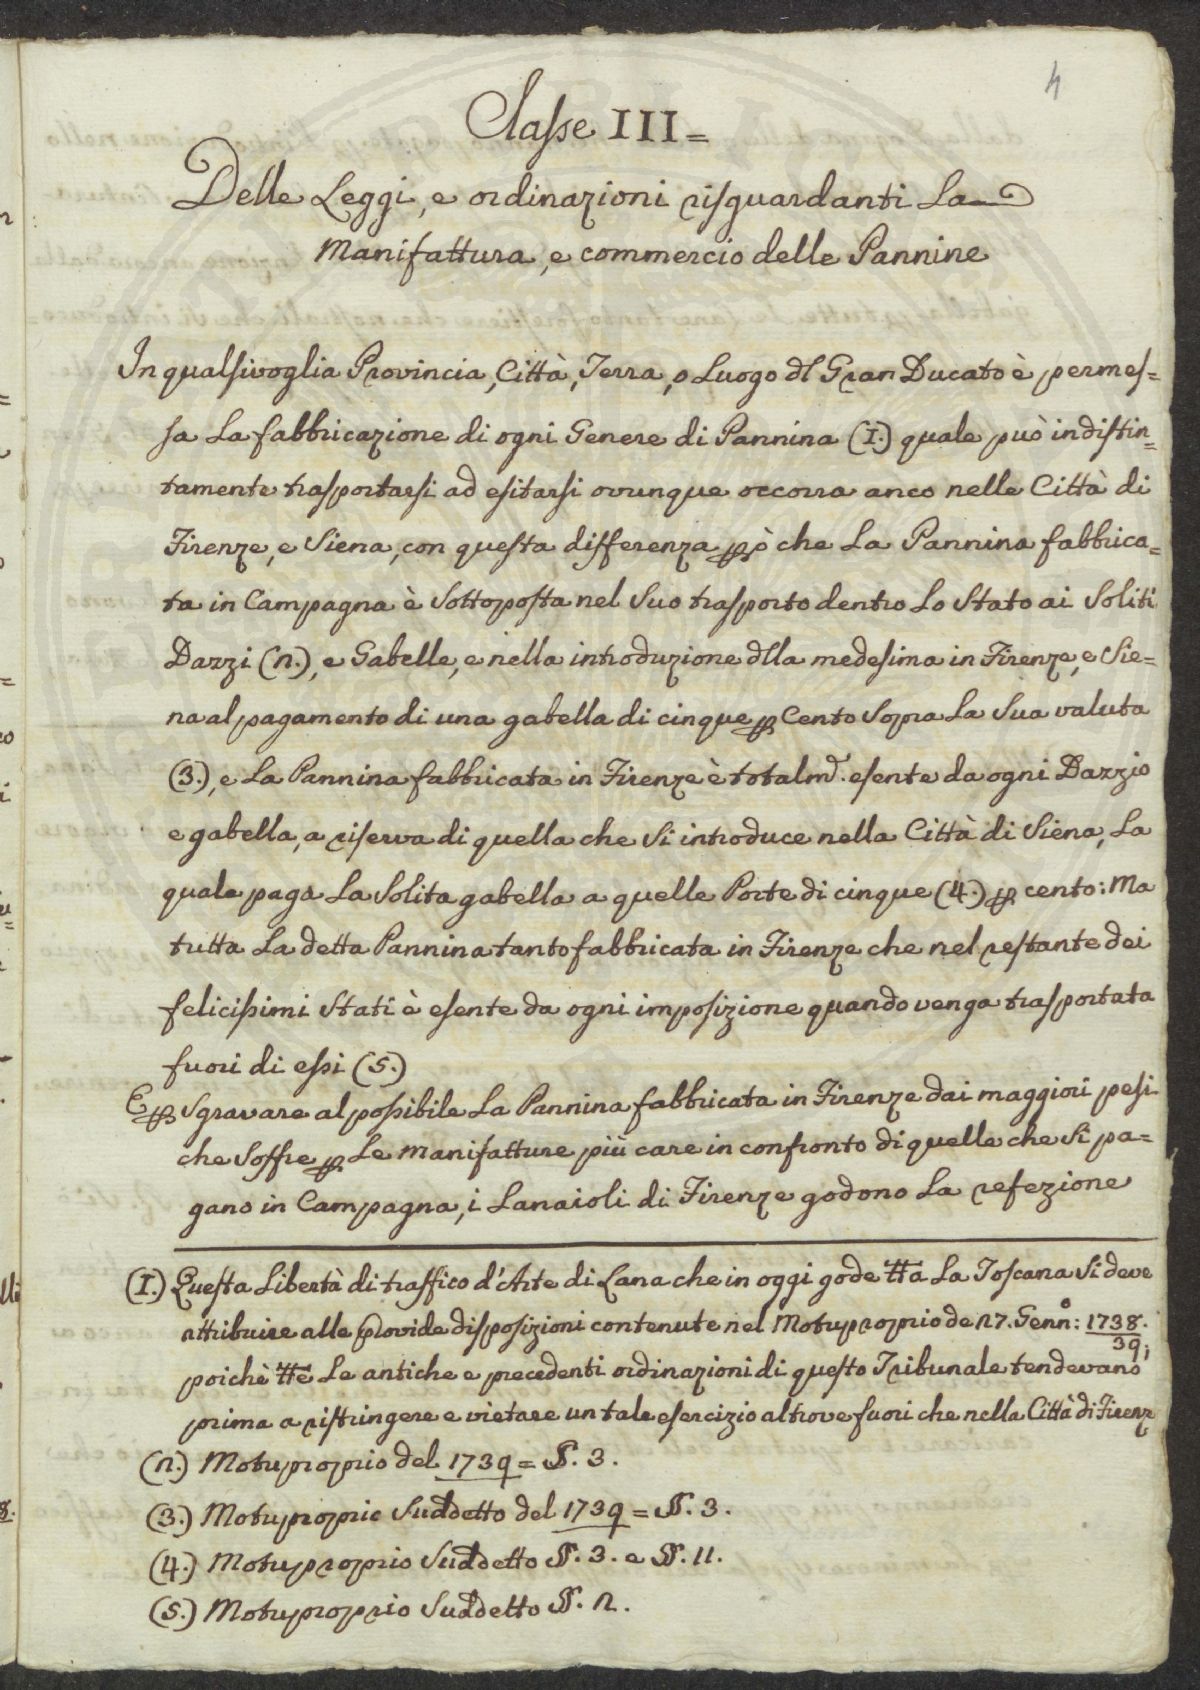 4
Classe III=
Delle Leggi, e ordinazioni risguardanti La
Manifattura, e commercio delle Pannine
In qualsivoglia Provincia, Città, Terra, o Luogo dl Gran Ducato è permes=
sa La fabbricazione di ogni Genere di Pannina (1.) quale può indistin=
tamente trasportarsi ad esitarsi ovunque occorra anco nelle Città di
Firenze, e Siena, con questa differenza ꝑò che La Pannina fabbrica=
ta in Campagna è Sottoposta nel Suo trasporto dentro Lo Stato ai Soliti
Dazzi (2.), e Gabelle, e nella introduzione dlla medesima in Firenze, e Sie=
na al pagamento di una gabella di cinque ꝑ Cento Sopra La Sua valuta
(3.), e La Pannina fabbricata in Firenze è totalm.ᵉ esente da ogni Dazzio
e gabella, a riserva di quella che Si introduce nella Città di Siena, La
quale paga La Solita gabella a quelle Porte di cinque (4.) ꝑ cento: Ma
tutta La detta Pannina tanto fabbricata in Firenze che nel restante dei
felicissimi Stati è esente da ogni imposizione quando venga trasportata
fuori di essi (5.)
E ꝑ Sgravare al possibile La Pannina fabbricata in Firenze dai maggiori pesi
che Soffre ꝑ Le Manifatture più care in confronto di quelle che Si pa=
gano in Campagna, i Lanaioli di Firenze godono La refezione
(1.) Questa Libertà di traffico d'Arte di Lana che in oggi gode tta La Toscana Si deve
attribuire alle Provide disposizioni contenute nel Motuproprio de 27. Genn.º: 1738.
39;
poichè tte Le antiche e precedenti ordinazioni di questo Tribunale tendevano
prima a ristringere e vietare un tale esercizio altrove fuori che nella Città di Firenze
(2.) Motuproprio del 1739 = §. 3.
(3.) Motuproprio Suddetto del 1739 = §. 3.
(4.) Motuproprio Suddetto §. 3. e §. 11.
(5.) Motuproprio Suddetto §. 2.